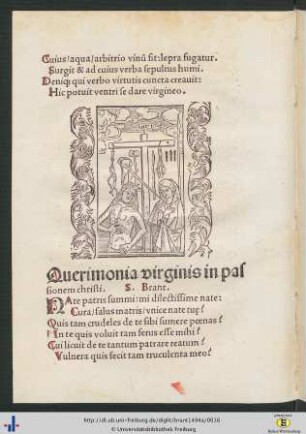 Cuius/aqua/arbitrio vinũ fit:lepra fugatur.
Surgit & ad cuius verba sepultus humi.
Deniqꝫ qui verbo virtutis cuncta creauit:
Hic potuit ventri se dare virgineo.
Querimonia virginis in pas
sionem christi. S. Brant.
NAte patris summi:mi dilectissime nate:
Cura/salus matris/vnice nate tuę?
Quis tam crudeles de te sibi sumere pœnas?
In te quis voluit tam ferus esse mihi?
Cui licuit de te tantum patrare reatum?
Vulnera quis fecit tam truculenta meo?
http://dl.ub.uni-freiburg.de/diglit/brant1494a/0016
© Universitätsbibliothek Freiburg